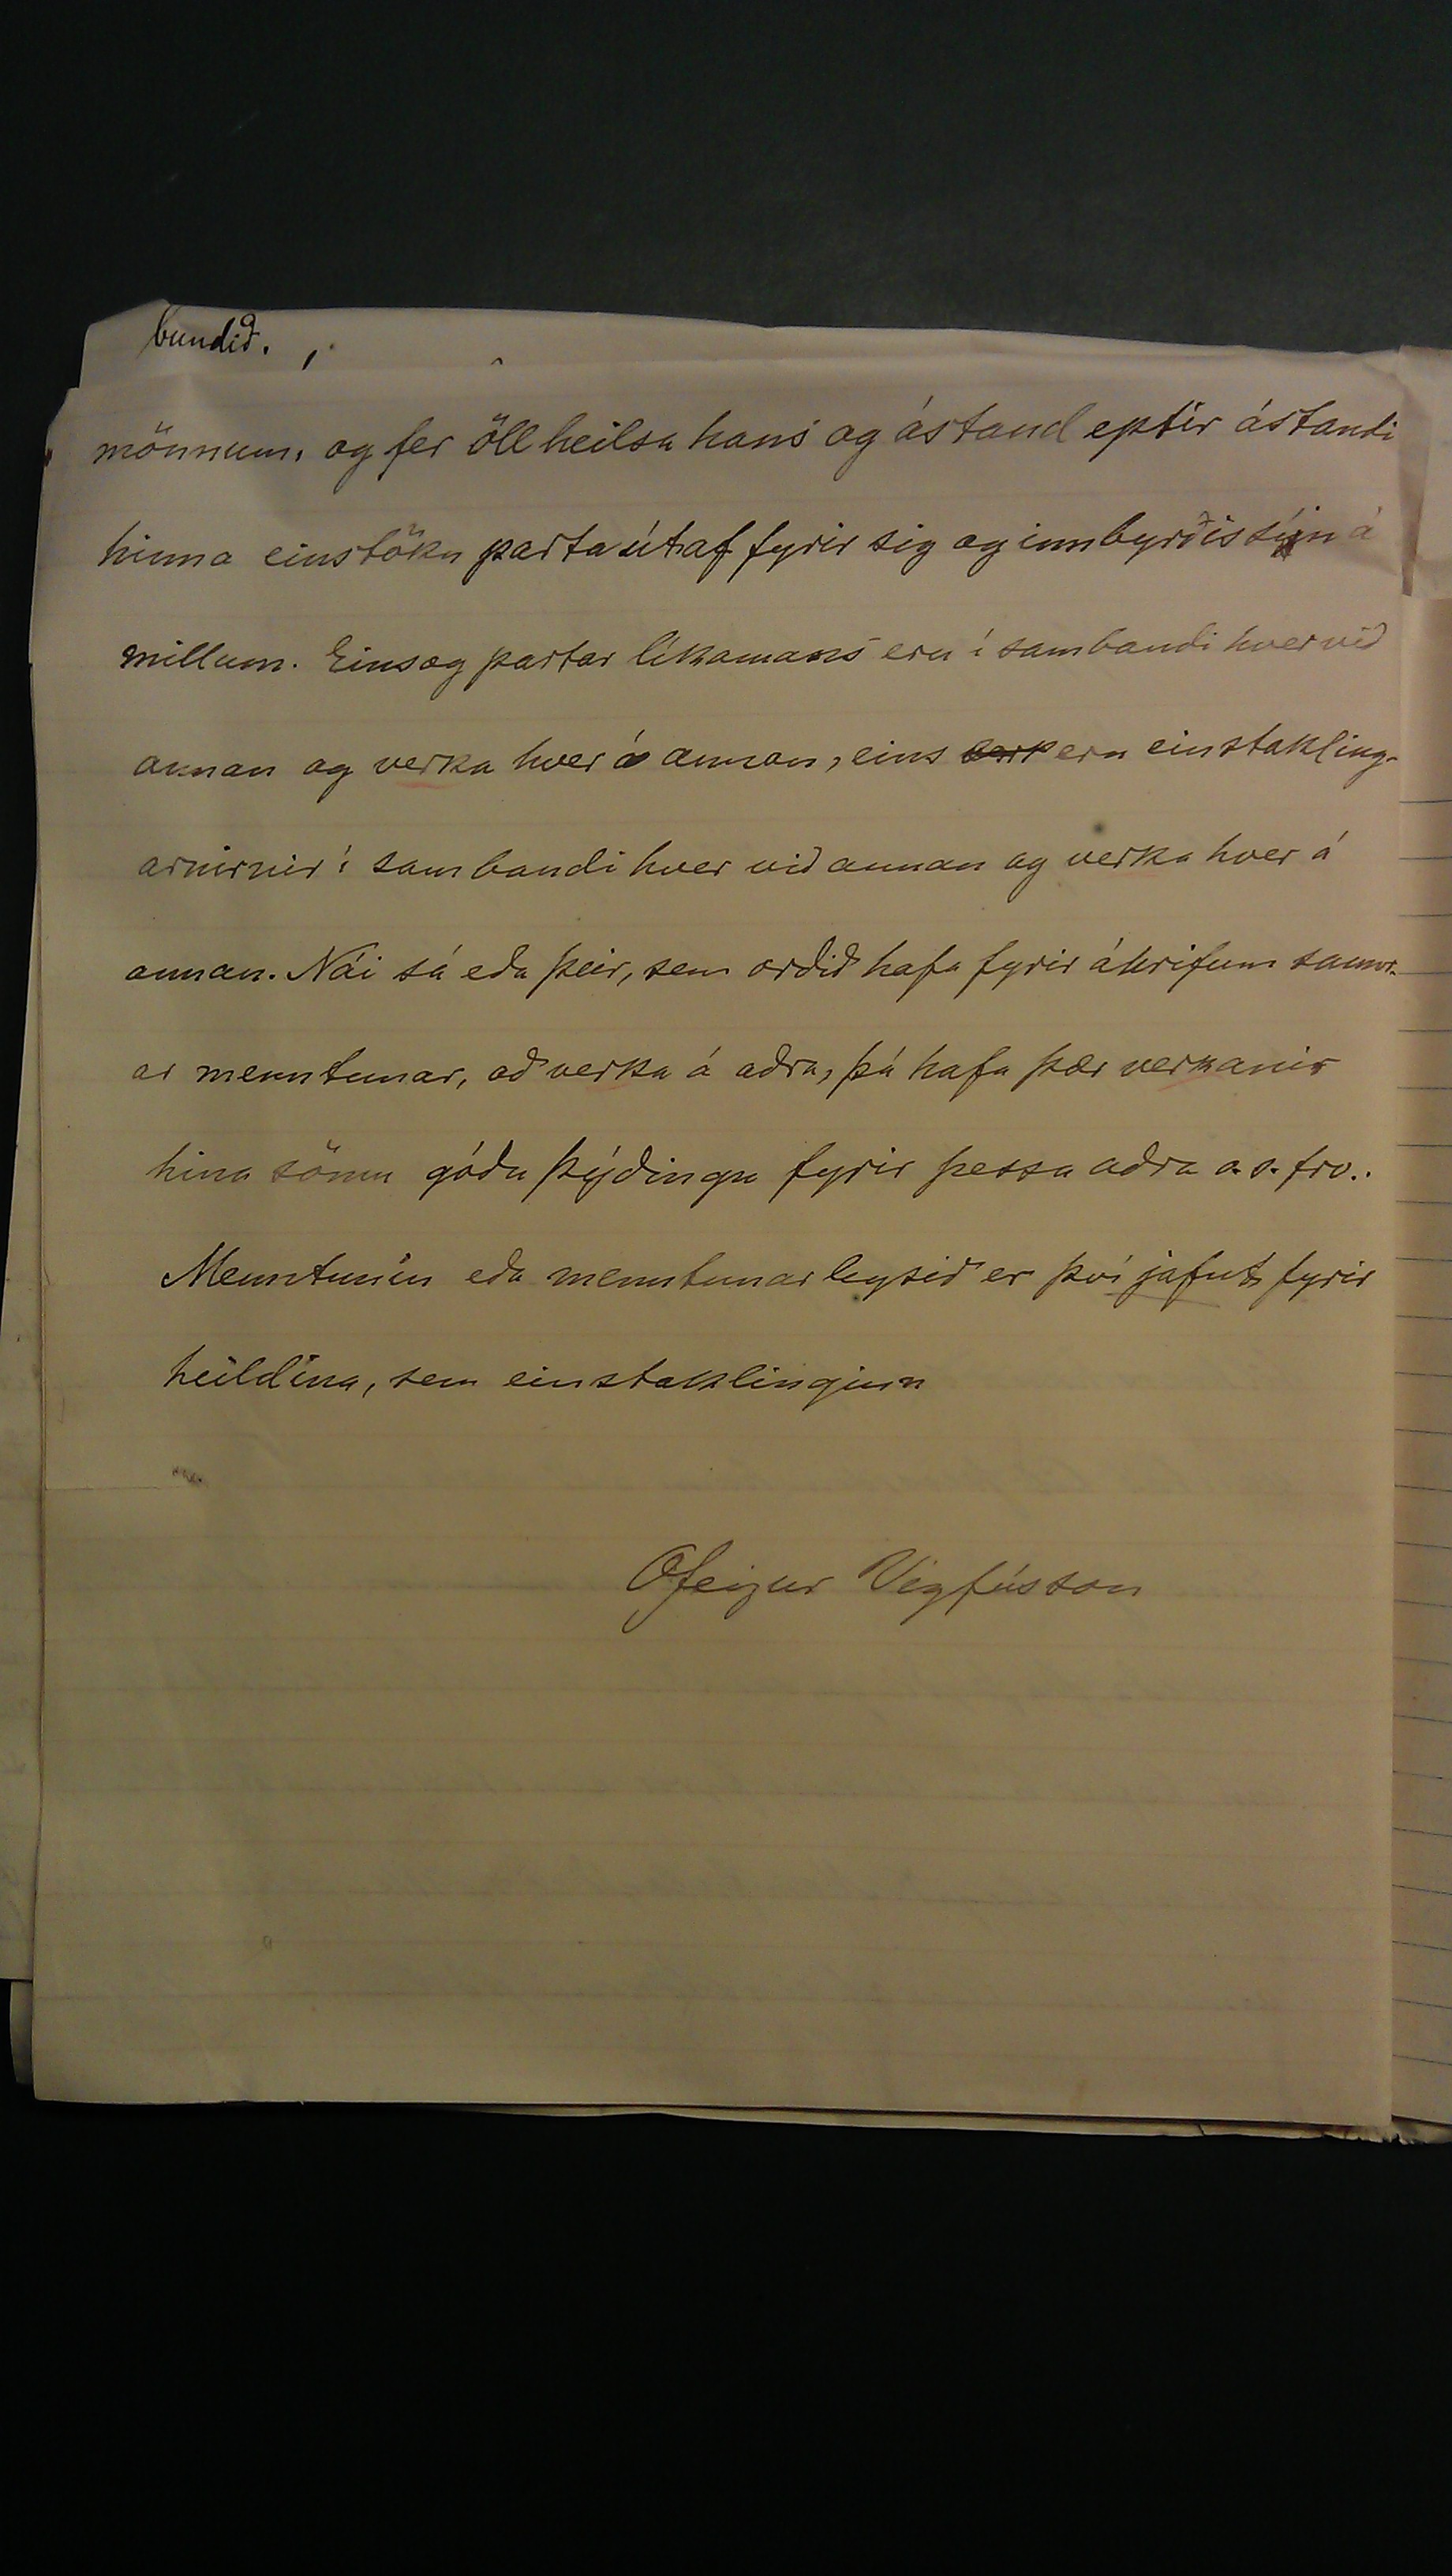 bundið.
mönnum, og fer öll heilsa hans og ástand eptir ástandi
hinna einstöku parta útaf fyrir sig og innbyrðis sín á
millum. Eins og partar líkamans eru í sambandi hver við
annan og verka hver á annan, eins eru einstakling-
arnirnir í sambandi hver við annan og verka hver á
annan. Nái sá eða þeir, sem orðið hafa fyrir áhrifum sannr-
ar menntunar, að verka á aðra, þá hafa þær verkanir
hina sömu góðu þýðingu fyrir þessa aðra o.s.frv..
Menntunin eða menntunarleysið er því jafnt fyrir
heildina, sem einstaklinginn
Ofeigur Vigfússon